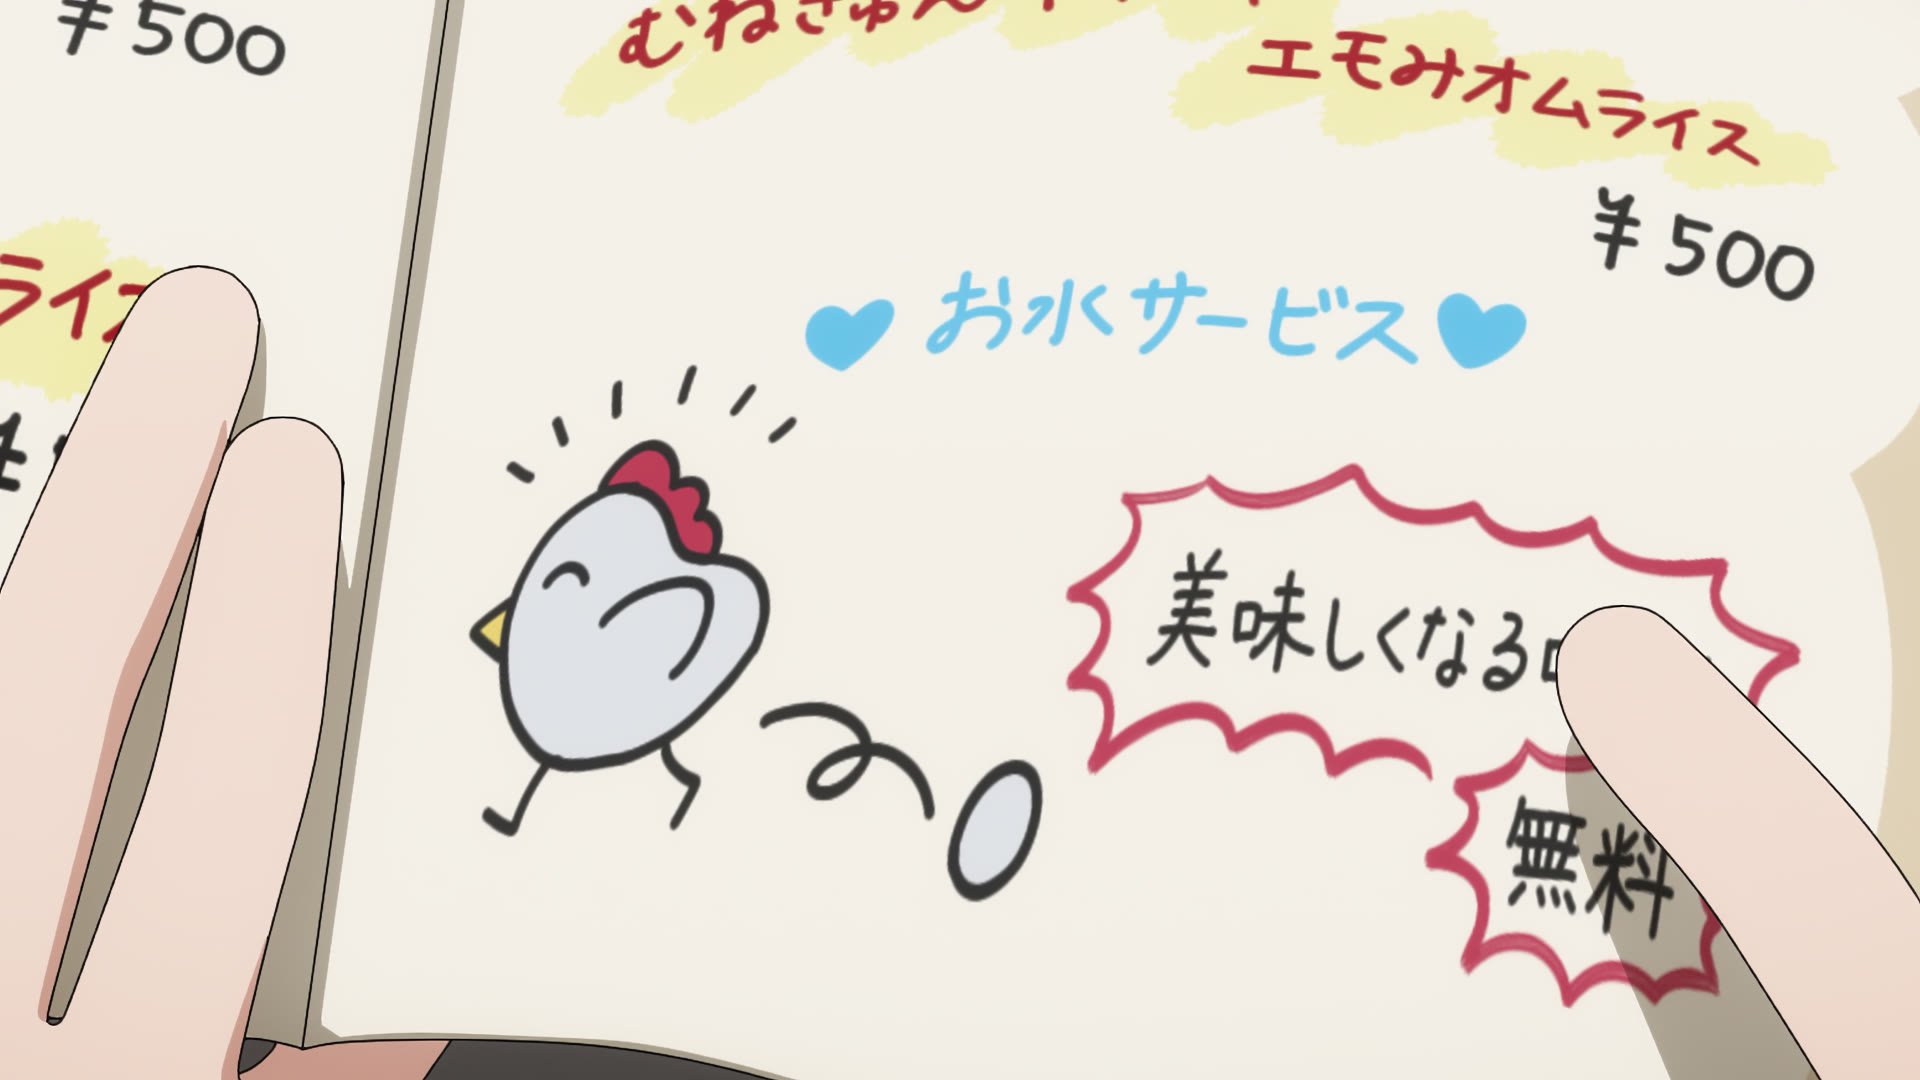 ¥500
ライス
むねきゅん
エモみオムライス
¥500
お水サービス
美味しくなる
無料